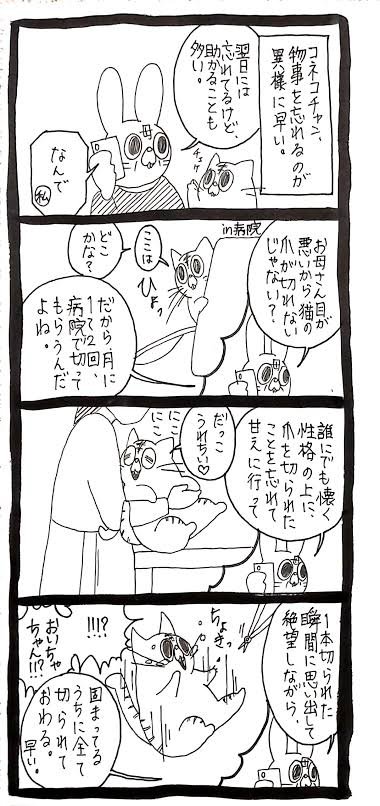 コネコチャン、
物事を忘れるのが
異様に早い。
翌日には
忘れてるけど、
助かることも
多い。
チュケ
なんで
私
in病院
お母さん目が
悪いから猫の
爪が切れない
じゃない?
ここは
どこ
かな?
ひょっ
だから月に
1~2回、
病院で切って
もらうんだ
よね。
誰にでも懐く
性格の上に、
爪を切られた
ことを忘れて
甘えに行って
だっこ
うれちい♡
にこ
にこ
1本切られた
瞬間に思い出して
絶望しながら、
ちょきっ
!!!?
おいちゃ
ちゃん!!?
固まってる
うちに全て
切られて
おわる。
早い。